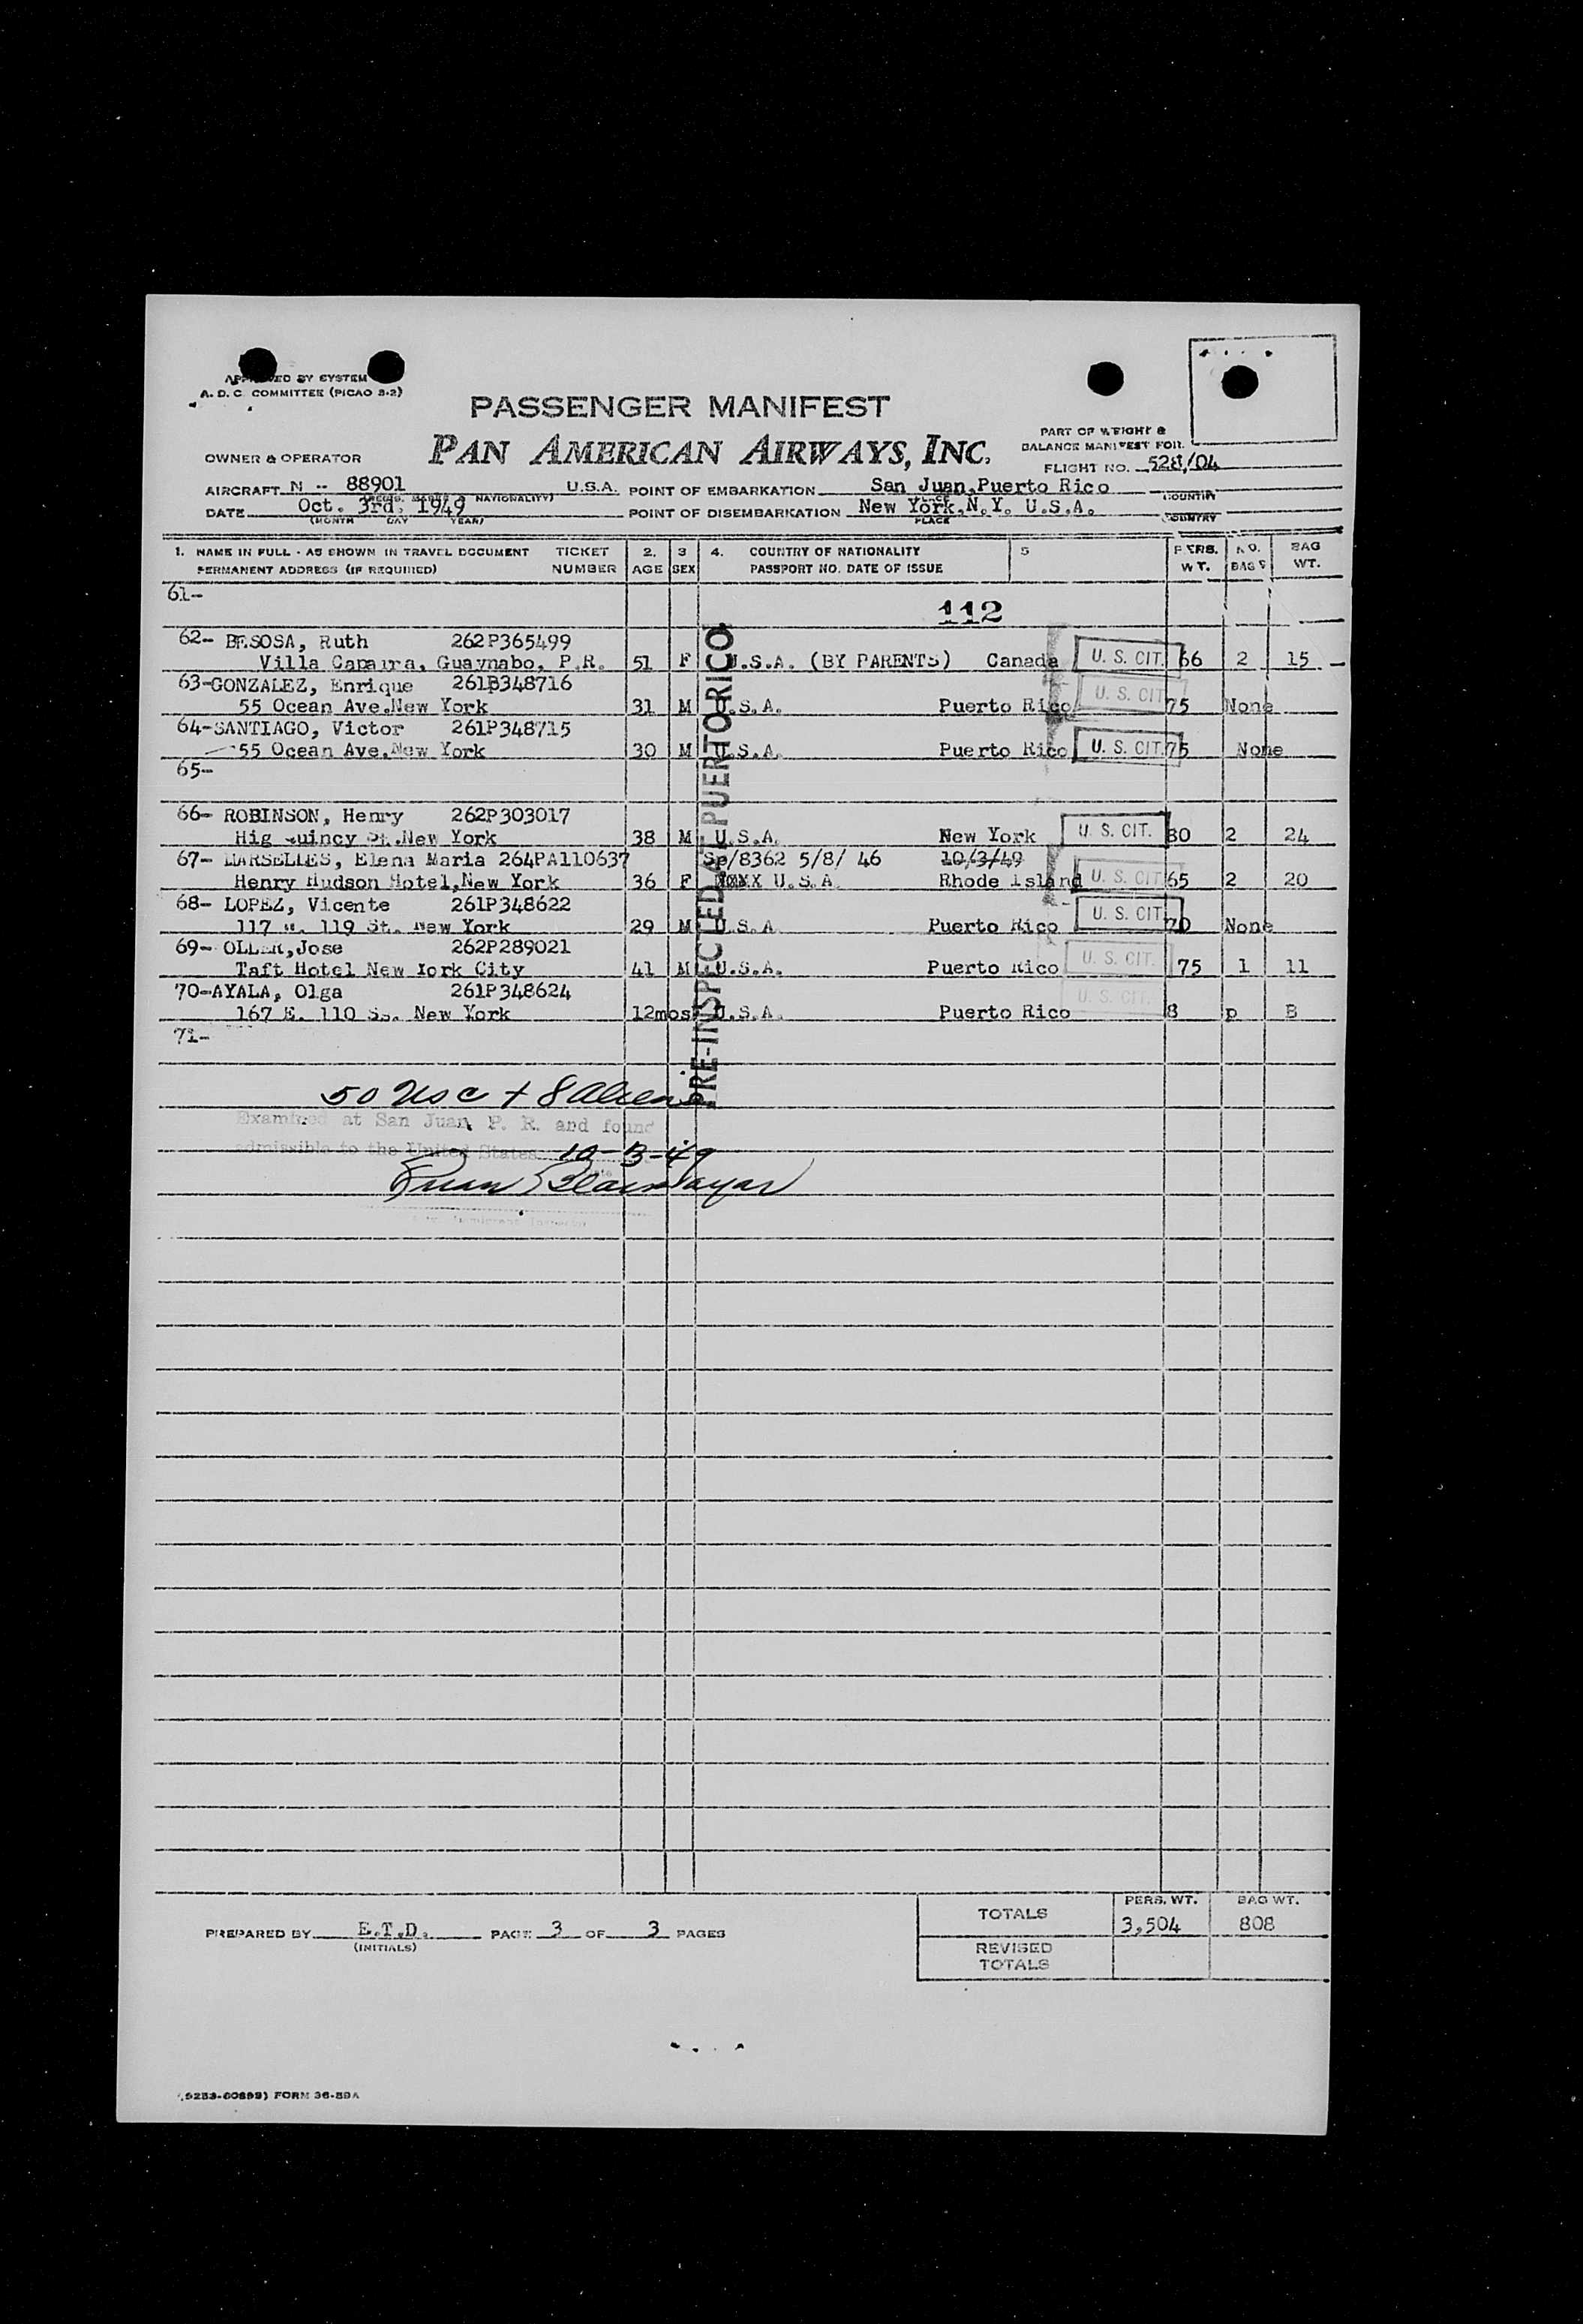 APPROVED BY SYSTEM
A. D. C. COMMITTEE (PICAO 3-2)
PASSENGER MANIFEST
PART OF WEIGHT &
BALANCE MANIFEST FOR
OWNER & OPERATOR PAN AMERICAN AIRWAYS, INC.
FLIGHT NO. 528/04
AIRCRAFT N -- 88901 U.S.A. POINT OF EMBARKATION San Juan, Puerto Rico
NATIONALITY) PLACE COUNTRY
DATE Oct. 3rd, 1949 POINT OF DISEMBARKATION New York, N.Y. U.S.A.
(MONTH DAY YEAR) PLACE COUNTRY
1. NAME IN FULL - AS SHOWN IN TRAVEL DOCUMENT TICKET 2. 3 4. COUNTRY OF NATIONALITY 5 PERS. NO. BAG
PERMANENT ADDRESS (IF REQUIRED) NUMBER AGE SEX PASSPORT NO. DATE OF ISSUE WT. BAGS WT.
61-
112
62- BESOSA, Ruth 262P365499
Villa Caparra, Guaynabo, P.R. 51 F U.S.A. (BY PARENTS) Canada U. S. CIT. 66 2 15
63-GONZALEZ, Enrique 261P348716
55 Ocean Ave.New York 31 M U.S.A. Puerto Rico U. S. CIT 75 None
64-SANTIAGO, Victor 261P348715
55 Ocean Ave.New York 30 M U.S.A. Puerto Rico U. S. CIT. 75 None
65-
66- ROBINSON, Henry 262P303017
New York 38 M U.S.A. New York U. S. CIT. 80 2 24
67- MARSELLES, Elena Maria 264PA110637 Sp/8362 5/8/ 46 10/3/49
Henry Hudson Hotel,New York 36 F U.S.A. Rhode Island U. S. CIT 65 2 20
68- LOPEZ, Vicente 261P348622
117 119 St. New York 29 M U.S.A Puerto Rico U. S. CIT. 70 None
69- OLLER,Jose 262P289021
Taft Hotel New York City 41 M U.S.A. Puerto Rico U. S. CIT. 75 1 11
70-AYALA, Olga 261P348624
167 E. 110 New York 12mos U.S.A. Puerto Rico U. S. CIT. 8 p B
71-
PRE-INSPECTED AT PUERTO RICO
50 USC + 8 Aliens
Examined at San Juan, P. R. and found
admissible to the United States 10-3-49
Juan
Immigrant Inspector
TOTALS PERS. WT. BAG WT.
3,504 808
PREPARED BY E.T.D. PAGE 3 OF 3 PAGES
(INITIALS)
REVISED
TOTALS
FORM 36-89A